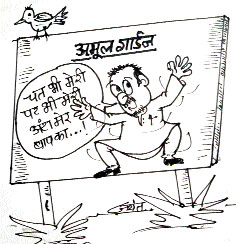 अमूल गार्डन
चत भी मेरी
पट भी मेरी
अंटा मेरे
बाप का...!